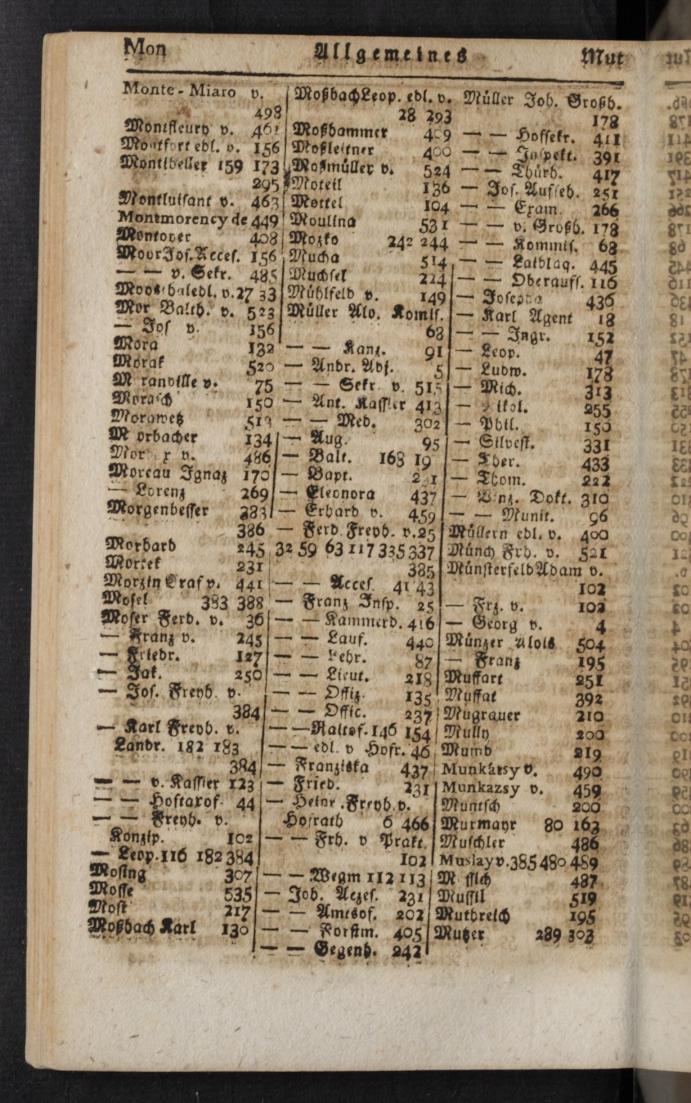 Mon Allgemeines Mut
Monte-Miaro v.
498
Montfleury v. 461
Montfort edl. v. 156
Montibeller 159 173
295
Montluisant v. 463
Montmorency de 449
Montoyer 408
Moor Jos. Acces. 156
— — v. Sekr. 485
Moosthal edl. v. 27 33
Mor Balth. v. 523
— Jos v. 156
Mora 132
Morak 520
M ranville v. 75
Morasch 150
Morawetz 513
M orbacher 134
Mor x v. 486
Moreau Ignaz 170
— Lorenz 269
Morgenbesser 383
386
Morhard 245
Mortek 231
Morzin Graf v. 441
Mosel 383 388
Moser Ferd. v. 36
— Franz v. 245
— Friedr. 127
— Jak. 250
— Jos. Freyh. v.
384
— Karl Freyh. v.
Landr. 182 183
384
— — v. Kassier 123
— — Hoftaxof. 44
— — Freyh. v.
Konzip. 102
— Leop. 116 182 384
Mosing 307
Mosse 535
Most 217
Moßbach Karl 130
Moßbach Leop. edl. v.
28 293
Moßhammer 409
Moßleitner 400
Moßmüller v. 524
Moteil 136
Mottel 104
Moulina 531
Mozko 242 244
Mucha 514
Muchsel 224
Mühlfeld v. 149
Müller Alo. Komis.
68
— — Kanz. 91
— Andr. Adj. 5
— — Sekr v. 515
— Ant. Kassier 413
— — Med. 302
— Aug. 95
— Balt. 168 19
— Bapt.
— Eleonora 437
— Erhard v. 459
— Ferd Freyh. v. 25
32 59 63 117 335 337
385
— — Acces. 41 43
— Franz Insp. 25
— — Kammerd. 416
— — Lauf. 440
— — Lehr. 87
— — Lieut. 218
— — Offiz. 135
— — Offic. 237
— — Raitof. 146 154
— — edl. v Hofr. 46
— Franziska 437
— Fried. 231
— Heinr. Freyh. v.
Hofrath 6 466
— — Frh. v Prakt.
102
— — Wegm 112 113
— Joh. Aczes. 231
— — Amtsof. 202
— — Forstm. 405
— — Gegenh. 242
Müller Joh. Großh.
178
— — Hofsekr. 411
— — Inspekt. 391
— — Thürh. 417
— Jos. Aufseh. 251
— — Exam. 266
— — v. Großh. 178
— — Kommis. 68
— — Laiblaq. 445
— — Oberauff. 116
— Josepha 436
— Karl Agent 18
— — Ingr. 152
— Leop. 47
— Ludw. 178
— Mich. 313
— ikol. 255
— Phil. 150
— Silvest. 331
— Ther. 433
— Thom. 222
— Wenz. Dokt. 310
— — Munit. 96
Müllern edl. v. 400
Münch Frh. v. 521
Münsterfeld Adam v.
102
— Frz. v. 102
— Georg v. 4
Münzer Alois 504
— Franz 195
Muffart 251
Muffat 392
Mugrauer 210
Mully 200
Mumb 219
Munkátsy v. 490
Munkazsy v. 459
Muntsch 200
Murmayr 80 163
Muschler 486
Muslay v. 385 480 489
M sslch 487
Mussil 519
Muthreich 195
Mutzer 289 303